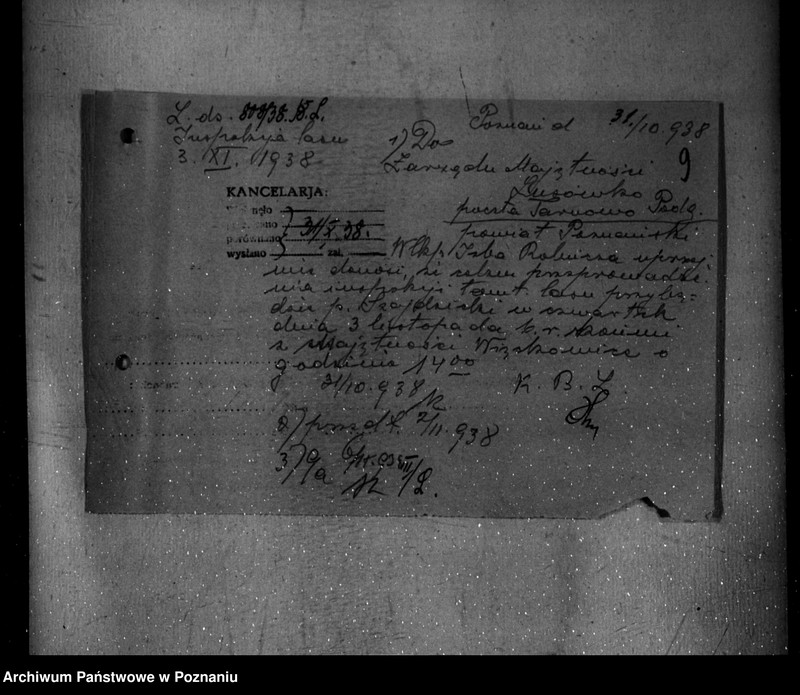 L. dz. 808/38. B.L.
Inspekcja lasu
3. XI. 1938
Poznań d 31./10. 938
9
1) Do
Zarządu Majętności
Lusówko
poczta Tarnowo Podg.
powiat Poznański
KANCELARJA:
31/X. 38.
porównano
wysłano zał.
Wlkp. Izba Rolnicza uprzej
mie donosi, że celem przeprowadze
nia inspekcji tamt. lasu przybę-
dzie p. Szajdzicki w czwartek
dnia 3 listopada b. r. końmi
z majętności o
godzinie 14 00
31/10. 938
K. B. L.
2) przedł. 2/11. 938
3) a/a